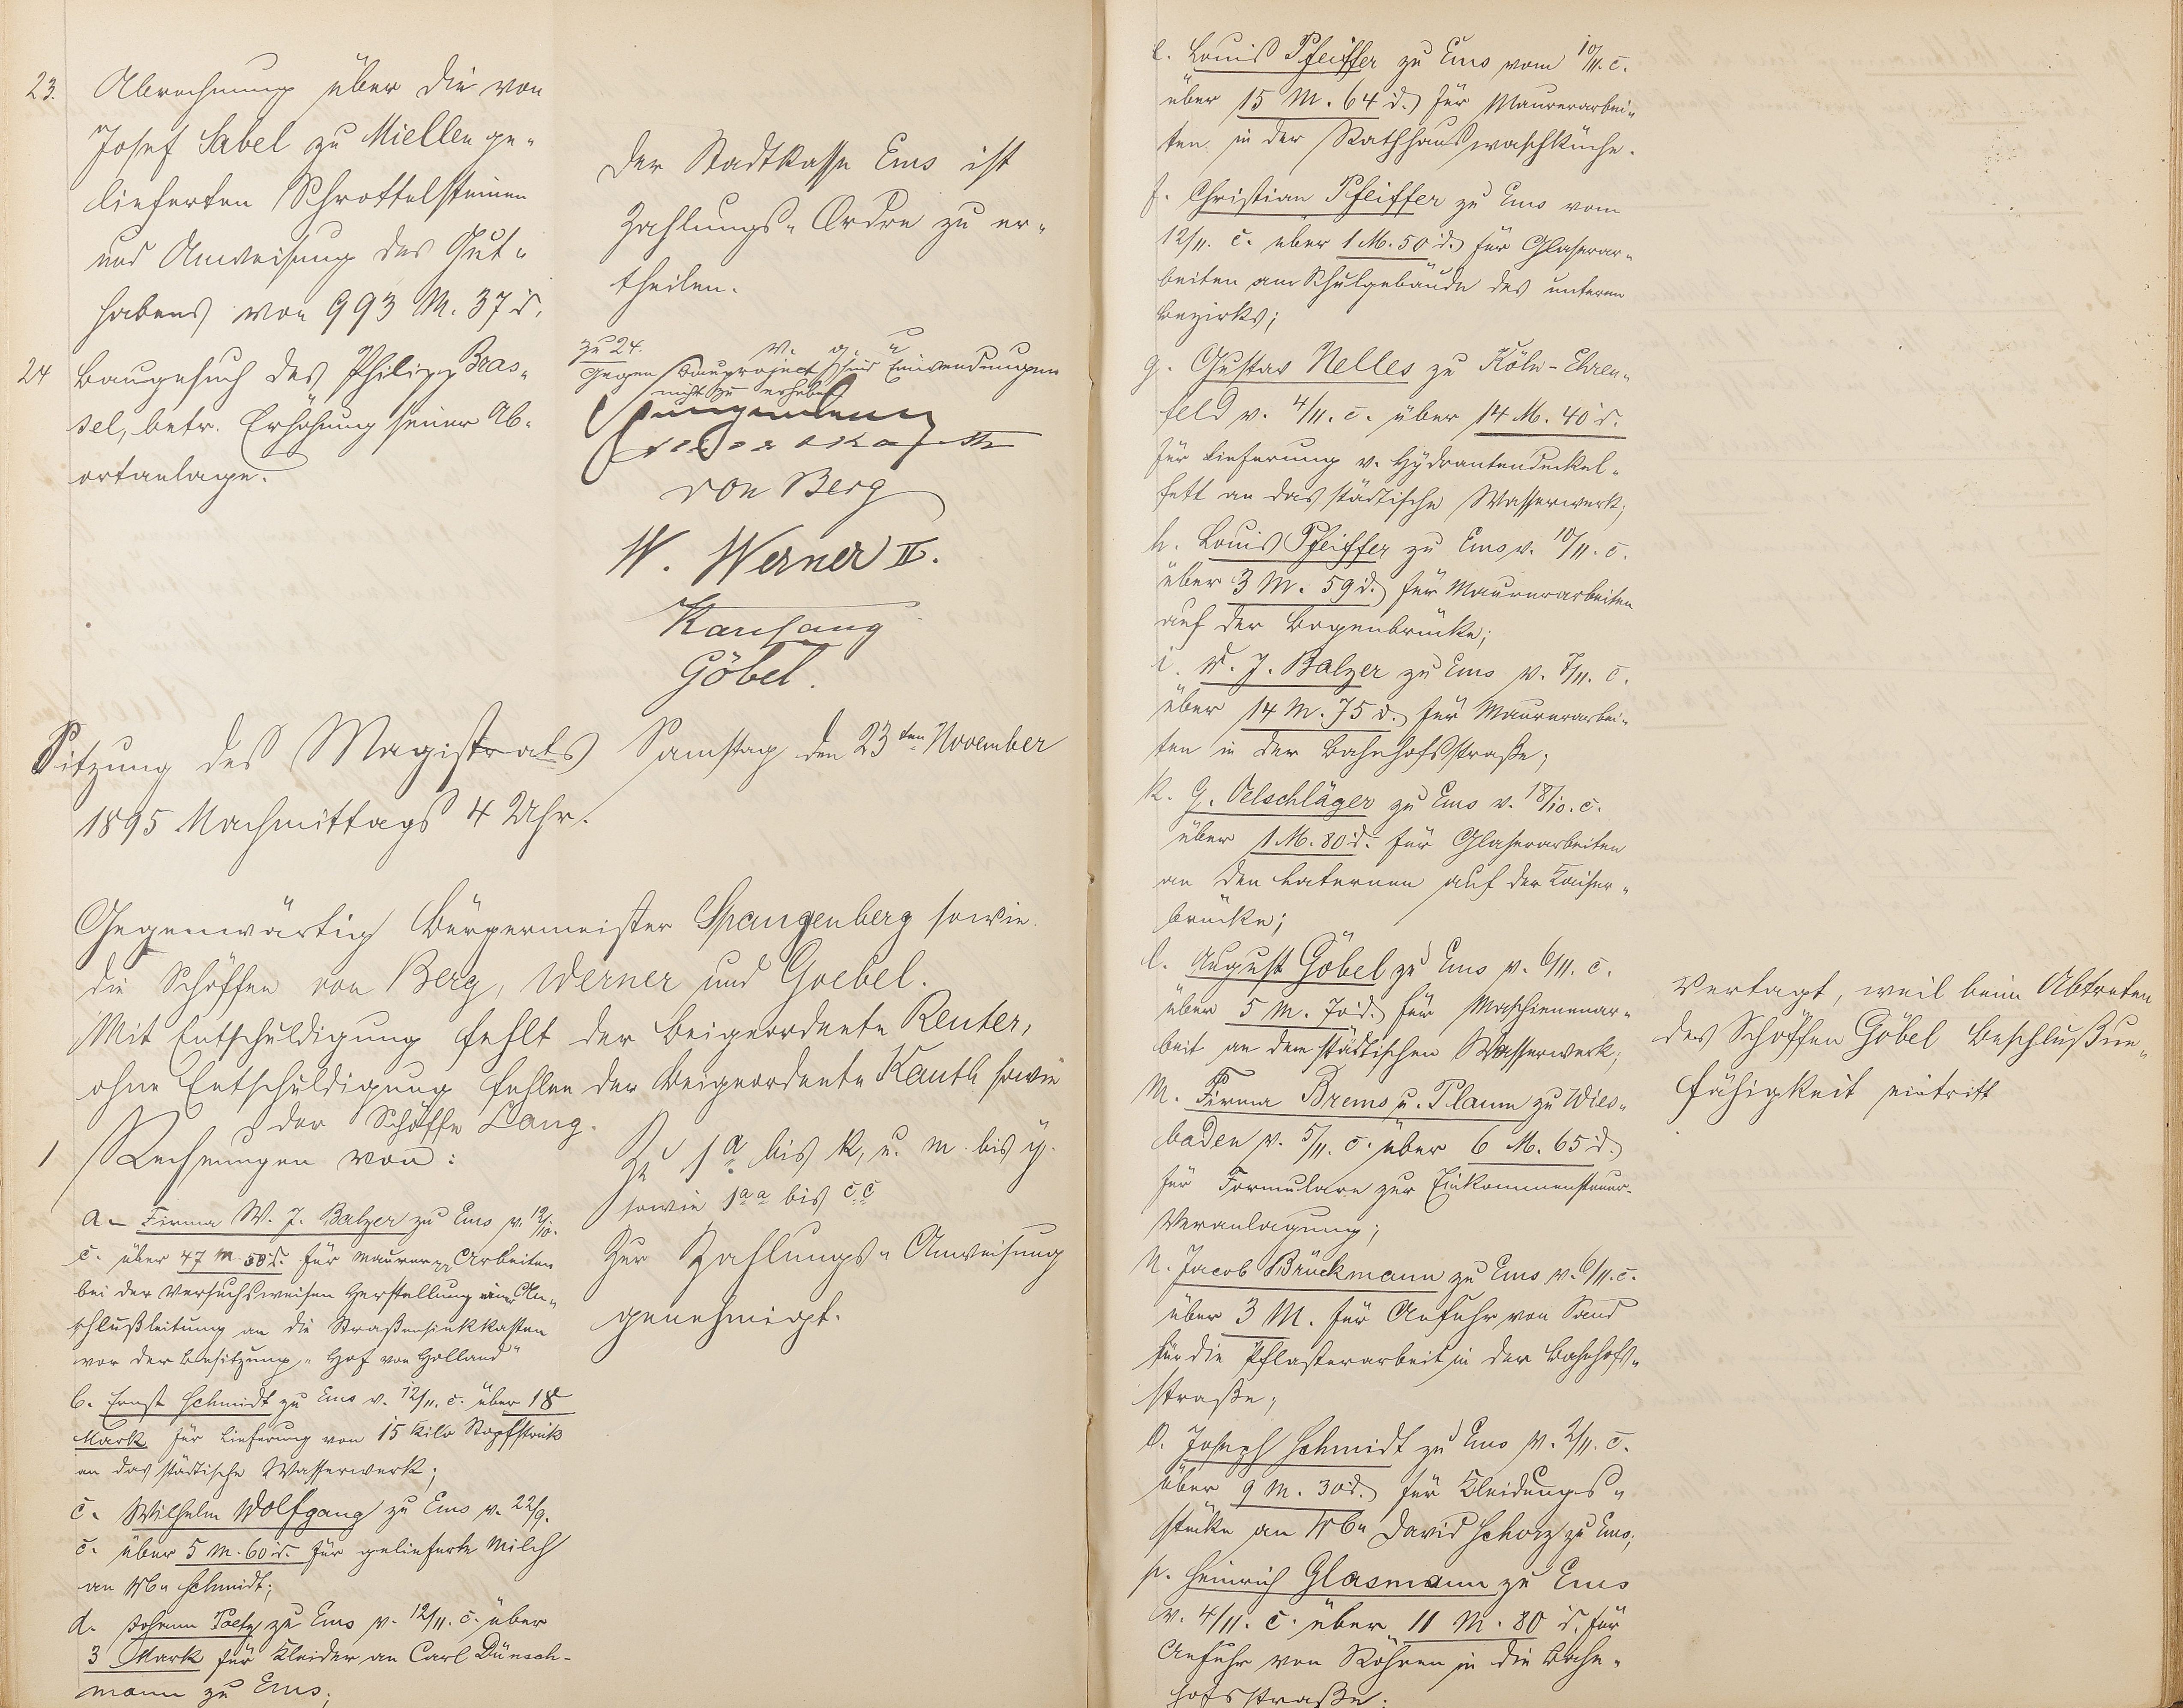 23. Abrechnung über die von
Josef Sabel zu Miellen ge-
lieferten Schrottelsteinen
und Anweisung des Gut-
habens von 993 M. 37 d.
Der Stadtkasse Ems ist
Zahlungs-Ordre zu er-
theilen.
24 Baugesuch des Philipp Bras-
sel, betr. Erhöhung seiner Ab-
ortanlage.
zu 24.
Gegen Bauproject sind Einwendungen
nicht zu erheben
v. g. u.
Spangenberg
von Berg
W. Werner II.
Göbel.
Sitzung des Magistrats Samstag den 23ten November
1895 Nachmittags 4 Uhr.
Gegenwärtig Bürgermeister Spangenberg sowie
die Schöffen von Berg, Werner und Goebel.
Mit Entschuldigung fehlt der Beigeordnete Reuter,
ohne Entschuldigung fehlen der Beigeordnete Kauth sowie
der Schöffe Lang.
1 Rechnungen von:
a. Firma W. J. Balzer zu Ems v. 12/10.
c. über 47 M. 50 d. für Maurer-Arbeiten
bei der versuchsweisen Herstellung einer An-
schlußleitung an die Straßensinkkasten
vor der Besitzung "Hof von Holland"
b. Ernst Schmidt zu Ems v. 12/11. c. über 18
Mark für Lieferung von 15 Kilo Stopfstrick
an das städtische Wasserwerk;
c. Wilhelm Wolfgang zu Ems v. 22/9.
c. über 5 M. 60 d. für gelieferte Milch
an Wb. Schmidt;
d. Johann Poetz zu Ems v. 12/11. c. über
3 Mark für Kleider an Carl Dünsch-
mann zu Ems;
Zu 1 a bis k, u. m. bis y.
sowie 1 aa bis cc
Zur Zahlungs-Anweisung
genehmigt.
e. Louis Pfeiffer zu Ems vom 10/11. c.
über 15 M. 64 d. für Maurerarbei-
ten in der Rathhauswaschküche.
f. Christian Pfeiffer zu Ems vom
12/11. c. über 1 M. 50 d. für Glaserar-
beiten am Schulgebäude des unteren
Bezirks;
g. Gustav Nelles zu Köln-Ehren-
feld v. 4/11. c. über 14 M. 40 d.
für Lieferung v. Hydrantendeckel-
fett an das städtische Wasserwerk;
h. Louis Pfeiffer zu Ems v. 10/11. c.
über 3 M. 59 d. für Maurerarbeiten
auf der Bogenbrücke;
i. W. J. Balzer zu Ems v. 7/11. c.
über 14 M. 75 d. für Maurerarbei-
ten in der Bahnhofsstraße;
k. G. Oelschläger zu Ems v. 18/10. c.
über 1 M. 80 d. für Glaserarbeiten
an den Laternen auf der Kaiser-
brücke;
l. August Göbel zu Ems v. 6/11. c.
über 5 M. 70 d. für Maschinenar-
beit an dem städtischen Wasserwerk;
Vertagt, weil beim Abtreten
des Schöffen Göbel Beschlußun-
fähigkeit eintritt
m. Firma Brems u. Plaum zu Wies-
baden v. 5/11. c. über 6 M. 65 d.
für Formulare zur Einkommensteuer-
Veranlagung;
n. Jacob Brückmann zu Ems v. 6/11. c.
über 3 M. für Anfuhr von Sand
für die Pflasterarbeit in der Bahnhofs-
straße;
o. Joseph Schmidt zu Ems v. 2/11. c.
über 9 M. 30 d. für Kleidungs-
stücke an Wb. David Schorz zu Ems;
p. Heinrich Glasmann zu Ems
v. 4/11. c. über 11 M. 80 d. für
Anfuhr von Röhren in die Bahn-
hofsstraße;